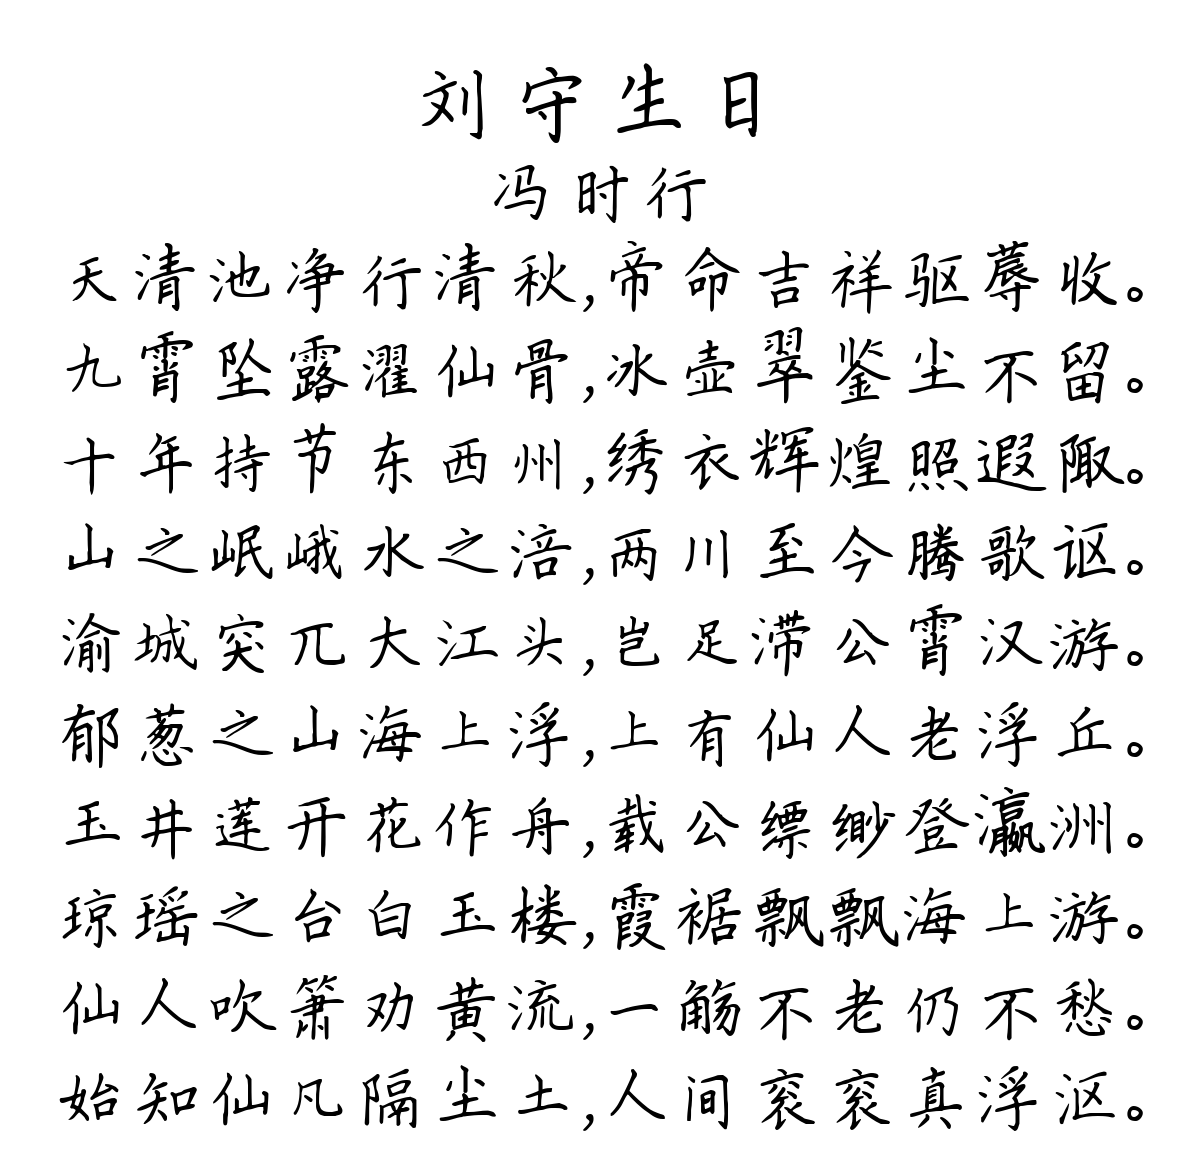 刘守生日
冯时行
天清池净行清秋,帝命吉祥驱蓐收。
九霄坠露濯仙骨,冰壶翠鉴尘不留。
十年持节东西州,绣衣辉煌照遐陬。
山之岷峨水之涪,两川至今腾歌讴。
渝城突兀大江头,岂足滞公霄汉游。
郁葱之山海上浮,上有仙人老浮丘。
玉井莲开花作舟,载公缥缈登瀛洲。
琼瑶之台白玉楼,霞裾飘飘海上游。
仙人吹箫劝黄流,一觞不老仍不愁。
始知仙凡隔尘土,人间衮衮真浮沤。